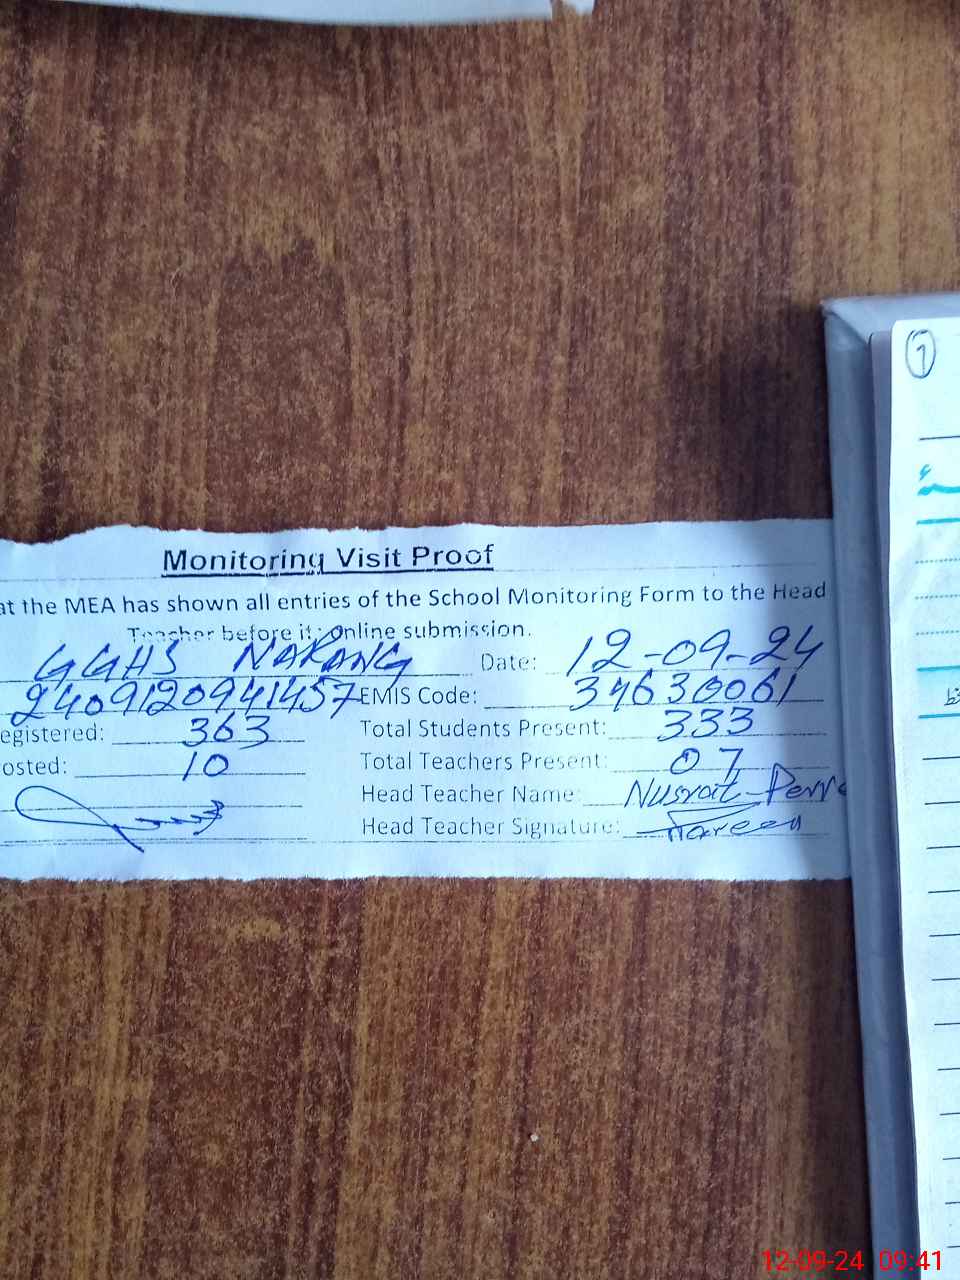 Monitoring Visit Proof
at the MEA has shown all entries of the School Monitoring Form to the Head
Teacher before it; Online submission.
GGHS NARANG Date: 12-09-24
2409120941457 EMIS Code: 34630061
egistered: 363 Total Students Present: 333
osted: 10 Total Teachers Present: 07
Head Teacher Name: Nusrat Perve
Head Teacher Signature:
1
12-09-24 09:41